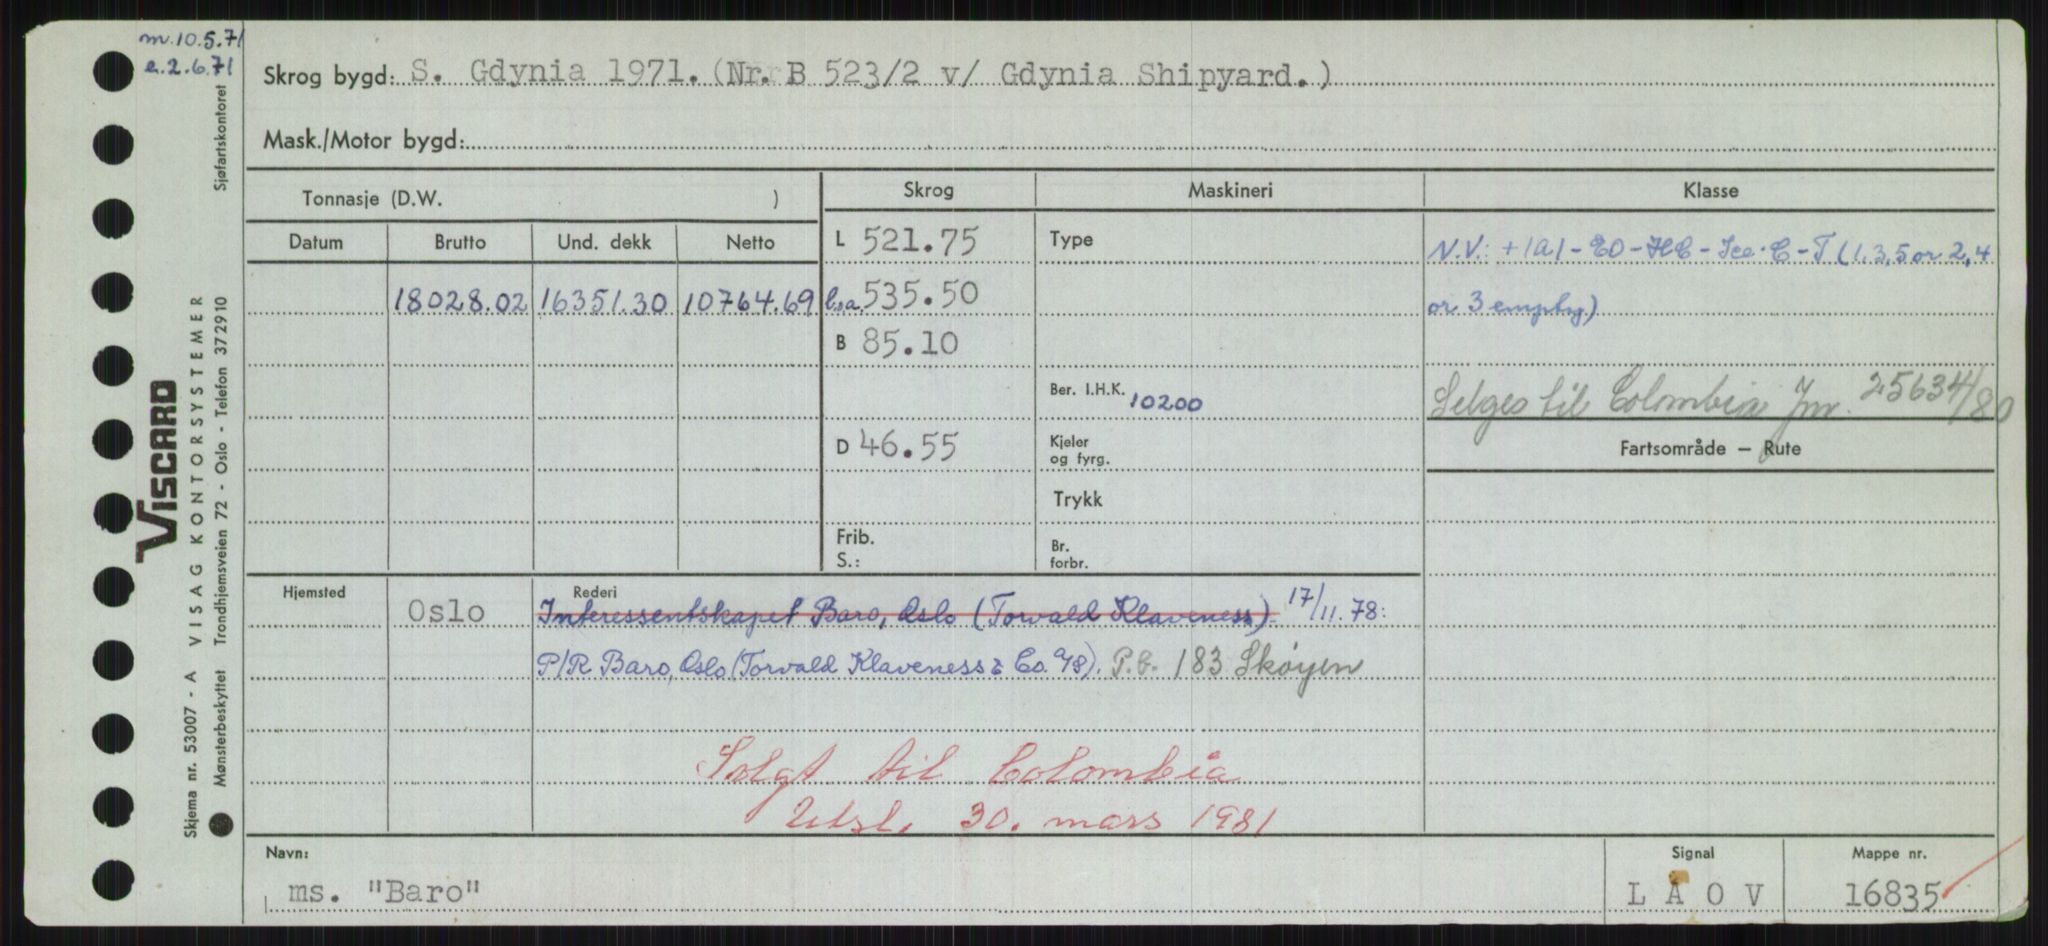 m. 10.5.71
e. 2.6.71
Skrog bygd: S. Gdynia 1971. (Nr. B 523/2 v/ Gdynia Shipyard.)
Mask./Motor bygd:
Tonnasje (D.W. )
Skrog Maskineri Klasse
Datum Brutto Und. dekk Netto
L 521.75 Type N.V.: +1A1-EO-HC-Ice-C-T (1,3,5 or 2,4
18028.02 16351.30 10764.69 l.o.a. 535.50 or 3 empty)
B 85.10
Ber. I.H.K. 10200 Selges til Colombia Jnr. 25634/80
D 46.55 Kjeler og fyrg. Fartsområde – Rute
Trykk
Frib.
S.:
Br. forbr.
Hjemsted Rederi
Oslo Interessentskapet Baro, Oslo (Torvald Klaveness). 17/11.78:
P/R Baro, Oslo (Torvald Klaveness & Co. A/S). P.b. 183 Skøyen
Solgt til Colombia
Utsl. 30. mars 1981
Navn: Signal Mappe nr.
ms. "Baro" L A O V 16835
VISCARD
Skjema nr. 53007 - A VISAG KONTORSYSTEMER
Mønsterbeskyttet Trondhjemsveien 72 - Oslo - Telefon 372910 Sjøfartskontoret